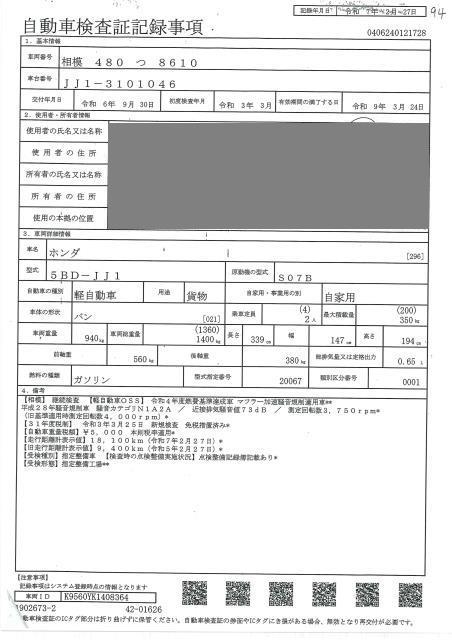 記録年月日 令和 7年 2月 27日
94
自動車検査証記録事項
0406240121728
1. 基本情報
車両番号 相模 480 つ 8610
車台番号 JJ1-3101046
交付年月日 令和 6年 9月 30日 初度検査年月 令和 3年 3月 有効期間の満了する日 令和 9年 3月 24日
2. 使用者・所有者情報
使用者の氏名又は名称
使用者の住所
所有者の氏名又は名称
所有者の住所
使用の本拠の位置
3. 車両詳細情報
車名 ホンダ [296]
型式 5BD-JJ1 原動機の型式 S07B
自動車の種別 軽自動車 用途 貨物 自家用・事業用の別 自家用
車体の形状 バン [021] 乗車定員 (4) 2人 最大積載量 (200) 350kg
車両重量 940kg 車両総重量 (1360) 1400kg 長さ 339cm 幅 147cm 高さ 194cm
前軸重 560kg 後軸重 380kg 総排気量又は定格出力 0.65L
燃料の種類 ガソリン 型式指定番号 20067 類別区分番号 0001
4. 備考
【相模】 継続検査 【軽自動車OSS】 令和4年度燃費基準達成車 マフラー加速騒音規制適用車**
平成28年騒音規制車 騒音カテゴリN1A2A / 近接排気騒音値73dB / 測定回転数3,750rpm*
(旧基準適用時測定回転数4,000rpm)*
【31年度税制】 令和3年3月25日 新規検査 免税措置済み*
【自動車重量税額】 ¥5,000 本則税率適用*
【走行距離計表示値】 18,100km (令和7年2月27日)*
【旧走行距離計表示値】 9,400km (令和5年2月27日)*
【受検種別】 指定整備車 【検査時の点検整備実施状況】 点検整備記録簿記載あり*
【受検形態】 指定整備工場**
【注意事項】
記録事項はシステム登録時点の情報となります
車両ID K9560YK1408364
1902673-2 42-01626
自動車検査証のICタグ部分は折り曲げずに保管ください。自動車検査証の券面やICタグにき損がある場合、無効となり再交付が必要です。